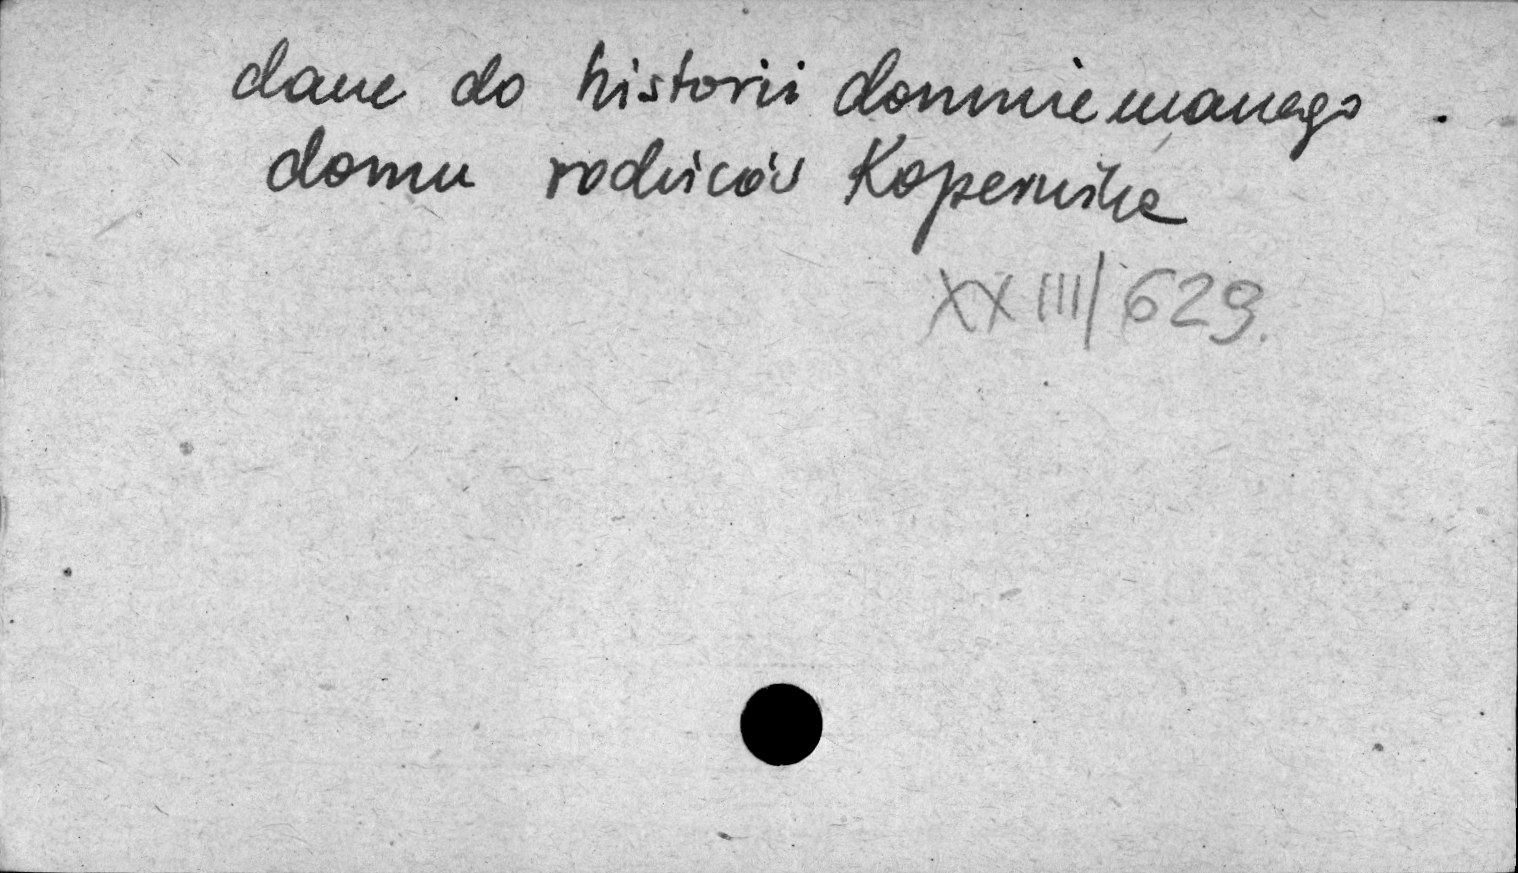 dane do historii domniemanego
domu rodziców Kopernika
XXIII/629.